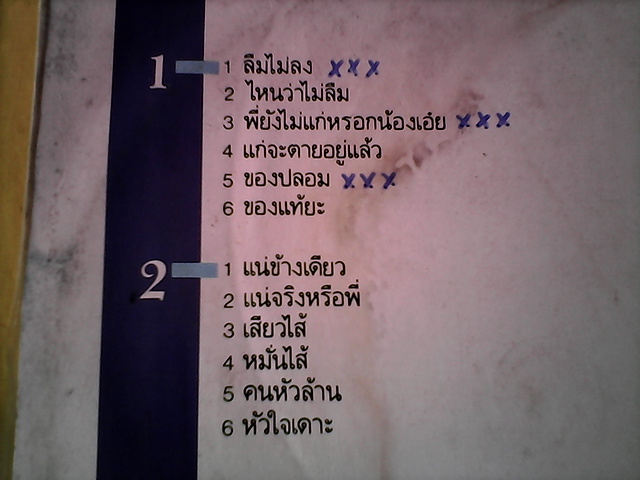 1
1 ลืมไม่ลง xxx
2 ไหนว่าไม่ลืม
3 พี่ยังไม่แก่หรอกน้องเอ๋ย xxx
4 แก่จะตายอยู่แล้ว
5 ของปลอม xxx
6 ของแท้ยะ
2
1 แน่ข้างเดียว
2 แน่จริงหรือพี่
3 เสียวไส้
4 หมั่นไส้
5 คนหัวล้าน
6 หัวใจเดาะ